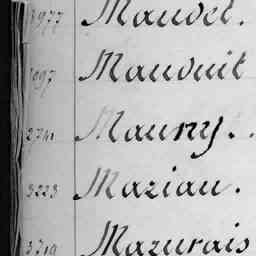 1977 Maudet.
1097 Mauduit
2741 Mauny.
3223 Maziau.
3719 Mazurais